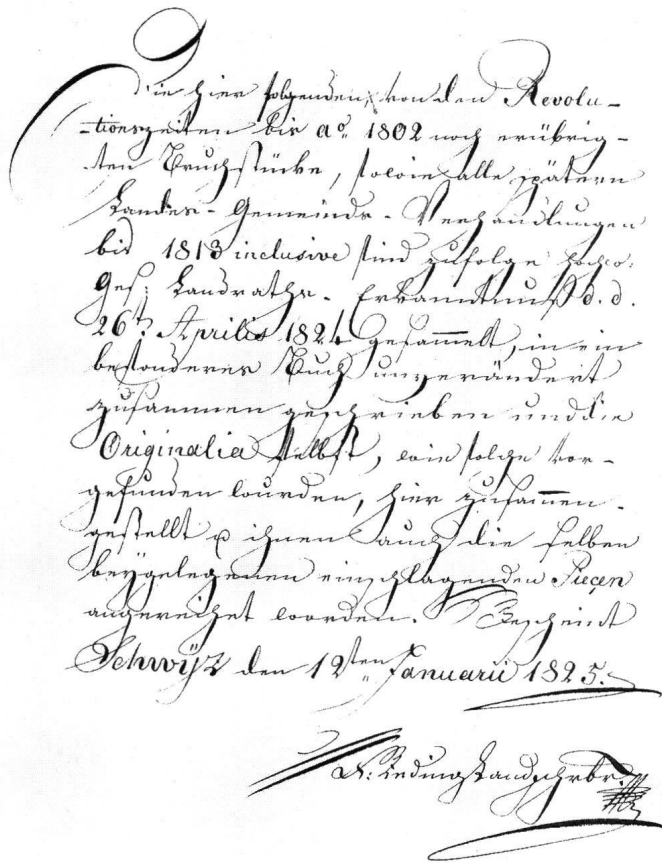 Die hier folgenden, von den Revolu-
-tionszeiten bis aº 1802 noch erübrig-
-ten Bruchstücke, sowie alle spätern
Landes-Gemeinds-Verhandlungen
bis 1813 inclusive sind zufolge hochw:
Ges: Landraths-Erkanntnuß d. d.
26t. Aprilis 1824 gesammelt, in ein
besonderes Buch unverändert
zusammen geschrieben und die
Originalia selbst, wie solche vor-
gefunden wurden, hier zusammen-
gestellt u ihnen auch die selben
beygelegenen einschlagenden Pieçen
angereihet worden. Bescheint
Schwÿz den 12ten Januarii 1825.
Reding Landschrbr.